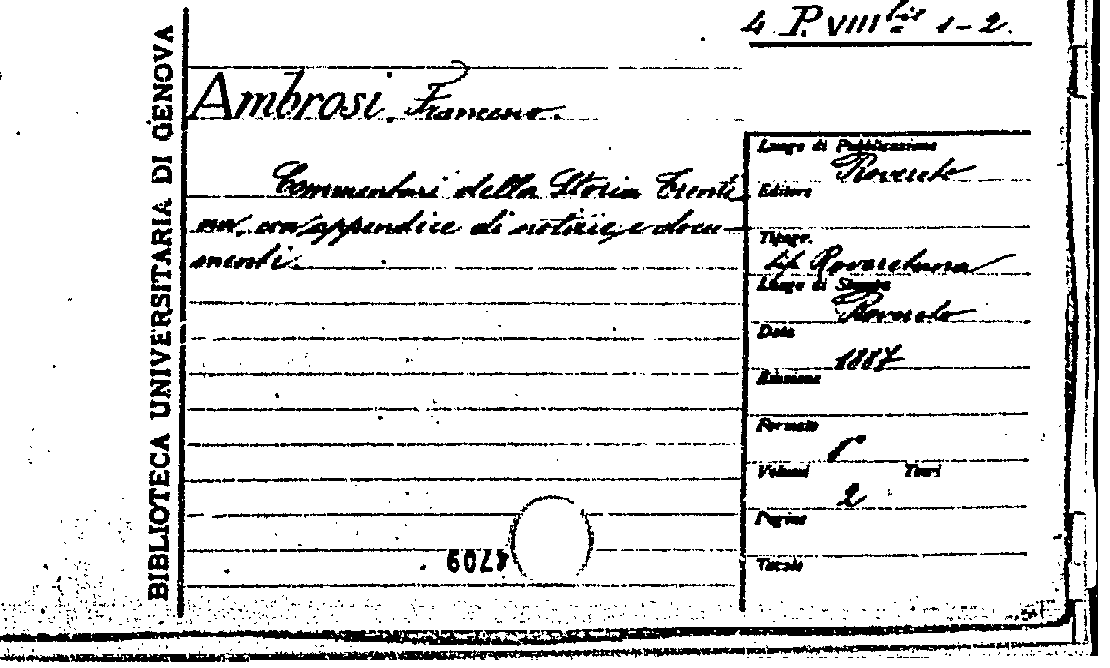 4 P. VIII bis 1-2.
BIBLIOTECA UNIVERSITARIA DI GENOVA
Ambrosi, Francesco.
Commentari della Storia Trenti
na, con appendice di notizie e docu-
menti.
Luogo di Pubblicazione
Rovereto
Editore
Tipogr.
tip. Roveretana
Luogo di Stampa
Rovereto
Data
1887
Edizione
Formato
8°
Volumi Tomi
2
Pagine
Tavole
4709